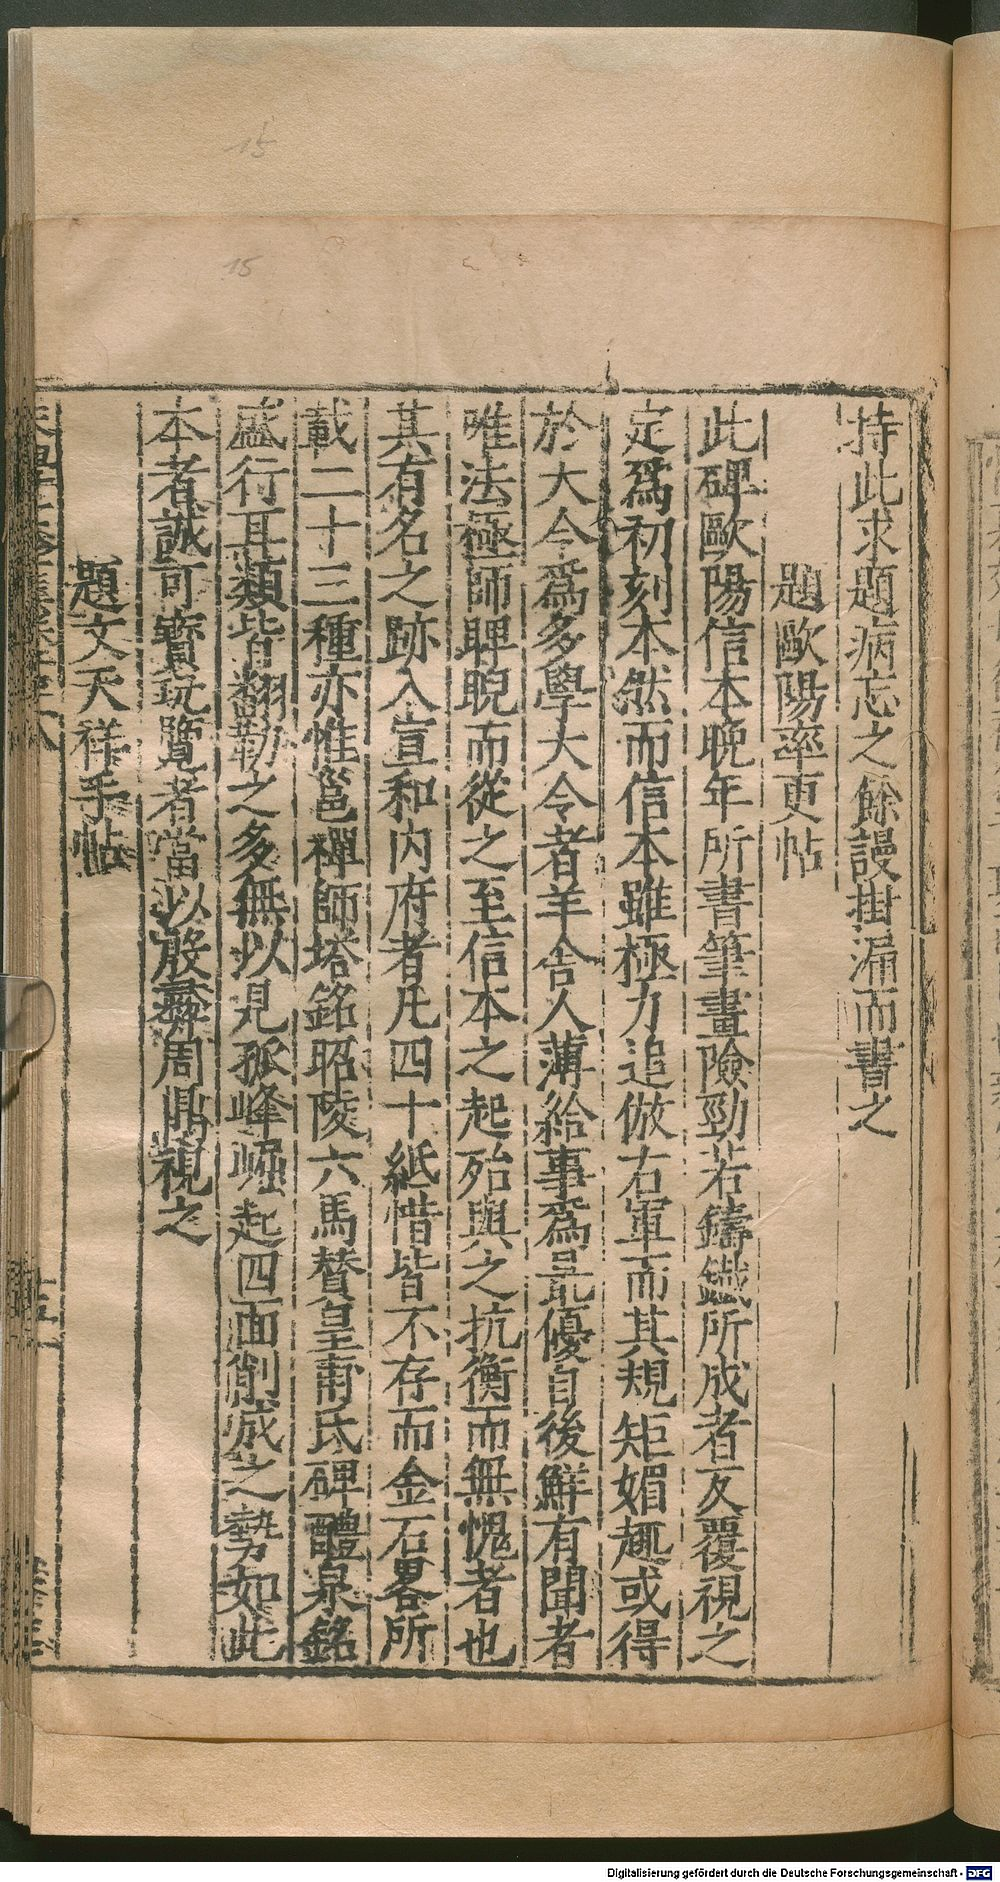 持此求題病忘之餘謾掛漏而書之
題歐陽率更帖
此碑歐陽信本晚年所書筆畫險勁若鑄鐵所成者反覆視之
定爲初刻本然而信本雖極力追倣右軍而其規矩媚趣或得
於大令爲多學大令者羊舍人薄給事爲最優自後鮮有聞者
唯法極師睥睨而從之至信本之起殆與之抗衡而無愧者也
其有名之跡入宣和內府者凡四十紙惜皆不存而金石畧所
載二十三種亦惟邕禪師塔銘昭陵六馬贊皇甫氏碑醴泉銘
盛行耳類皆翻勒之多無以見孤峰崛起四面削成之勢如此
本者誠可寶玩覽者當以殷彝周鼎視之
題文天祥手帖
15
15
Digitalisierung gefördert durch die Deutsche Forschungsgemeinschaft - DFG